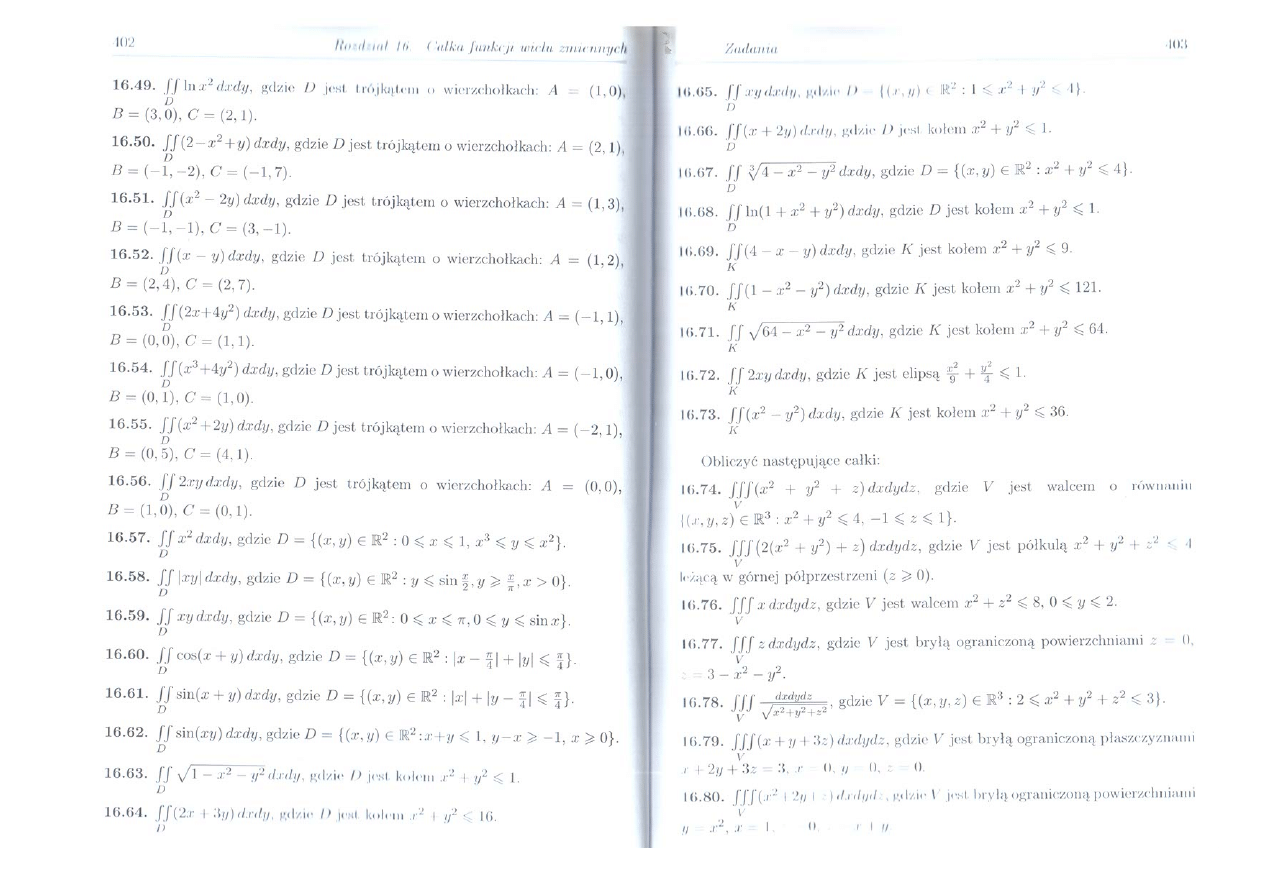 402
Rozdział 16 Całka funkcji wielu zmiennych
16.49. ∬ ln x² dxdy, gdzie D jest trójkątem o wierzchołkach: A = (1,0),
D
B = (3,0), C = (2,1).
16.50. ∬(2−x²+y) dxdy, gdzie D jest trójkątem o wierzchołkach: A = (2,1),
D
B = (−1,−2), C = (−1,7).
16.51. ∬(x² − 2y) dxdy, gdzie D jest trójkątem o wierzchołkach: A = (1,3),
D
B = (−1,−1), C = (3,−1).
16.52. ∬(x − y) dxdy, gdzie D jest trójkątem o wierzchołkach: A = (1,2),
D
B = (2,4), C = (2,7).
16.53. ∬(2x+4y²) dxdy, gdzie D jest trójkątem o wierzchołkach: A = (−1,1),
D
B = (0,0), C = (1,1).
16.54. ∬(x³+4y²) dxdy, gdzie D jest trójkątem o wierzchołkach: A = (−1,0),
D
B = (0,1), C = (1,0).
16.55. ∬(x²+2y) dxdy, gdzie D jest trójkątem o wierzchołkach: A = (−2,1),
D
B = (0,5), C = (4,1).
16.56. ∬ 2xy dxdy, gdzie D jest trójkątem o wierzchołkach: A = (0,0),
D
B = (1,0), C = (0,1).
16.57. ∬ x² dxdy, gdzie D = {(x,y) ∈ ℝ² : 0 ⩽ x ⩽ 1, x³ ⩽ y ⩽ x²}.
D
16.58. ∬ |xy| dxdy, gdzie D = {(x,y) ∈ ℝ² : y ⩽ sin x/2, y ⩾ x/π, x > 0}.
D
16.59. ∬ xy dxdy, gdzie D = {(x,y) ∈ ℝ² : 0 ⩽ x ⩽ π, 0 ⩽ y ⩽ sin x}.
D
16.60. ∬ cos(x + y) dxdy, gdzie D = {(x,y) ∈ ℝ² : |x − π/4| + |y| ⩽ π/4}.
D
16.61. ∬ sin(x + y) dxdy, gdzie D = {(x,y) ∈ ℝ² : |x| + |y − π/4| ⩽ π/4}.
D
16.62. ∬ sin(xy) dxdy, gdzie D = {(x,y) ∈ ℝ² : x+y ⩽ 1, y−x ⩾ −1, x ⩾ 0}.
D
16.63. ∬ √(1 − x² − y²) dxdy, gdzie D jest kołem x² + y² ⩽ 1.
D
16.64. ∬(2x + 3y) dxdy, gdzie D jest kołem x² + y² ⩽ 16.
D
Zadania
403
16.65. ∬ xy dxdy, gdzie D = {(x,y) ∈ ℝ² : 1 ⩽ x² + y² ⩽ 4}.
D
16.66. ∬(x + 2y) dxdy, gdzie D jest kołem x² + y² ⩽ 1.
D
16.67. ∬ ∛(4 − x² − y²) dxdy, gdzie D = {(x,y) ∈ ℝ² : x² + y² ⩽ 4}.
D
16.68. ∬ ln(1 + x² + y²) dxdy, gdzie D jest kołem x² + y² ⩽ 1.
D
16.69. ∬(4 − x − y) dxdy, gdzie K jest kołem x² + y² ⩽ 9.
K
16.70. ∬(1 − x² − y²) dxdy, gdzie K jest kołem x² + y² ⩽ 121.
K
16.71. ∬ √(64 − x² − y²) dxdy, gdzie K jest kołem x² + y² ⩽ 64.
K
16.72. ∬ 2xy dxdy, gdzie K jest elipsą x²/9 + y²/4 ⩽ 1.
K
16.73. ∬(x² − y²) dxdy, gdzie K jest kołem x² + y² ⩽ 36.
K
Obliczyć następujące całki:
16.74. ∭(x² + y² + z) dxdydz, gdzie V jest walcem o równaniu
V
{(x,y,z) ∈ ℝ³ : x² + y² ⩽ 4, −1 ⩽ z ⩽ 1}.
16.75. ∭(2(x² + y²) + z) dxdydz, gdzie V jest półkulą x² + y² + z² ⩽ 4
V
leżącą w górnej półprzestrzeni (z ⩾ 0).
16.76. ∭ x dxdydz, gdzie V jest walcem x² + z² ⩽ 8, 0 ⩽ y ⩽ 2.
V
16.77. ∭ z dxdydz, gdzie V jest bryłą ograniczoną powierzchniami z = 0,
V
z = 3 − x² − y².
16.78. ∭ dxdydz/√(x²+y²+z²), gdzie V = {(x,y,z) ∈ ℝ³ : 2 ⩽ x² + y² + z² ⩽ 3}.
V
16.79. ∭(x + y + 3z) dxdydz, gdzie V jest bryłą ograniczoną płaszczyznami
V
x + 2y + 3z = 3, x = 0, y = 0, z = 0.
16.80. ∭(x² + 2y + z) dxdydz, gdzie V jest bryłą ograniczoną powierzchniami
V
y = x², x = 1, 0, x + y